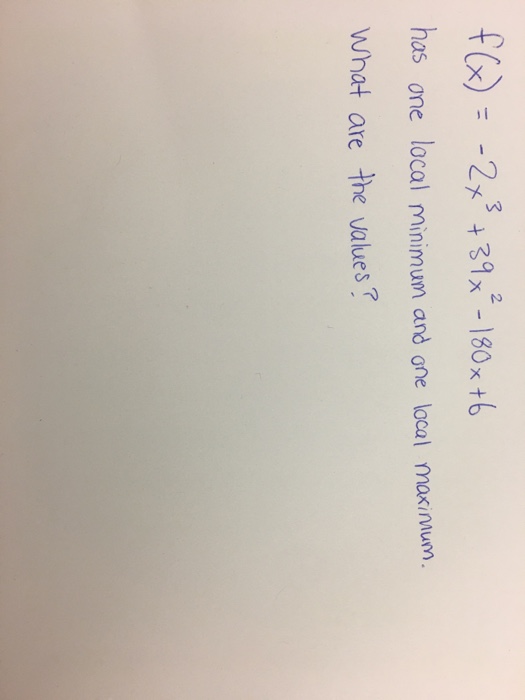 f(x) = -2x³ + 39x² - 180x + 6
has one local minimum and one local maximum.
What are the values?